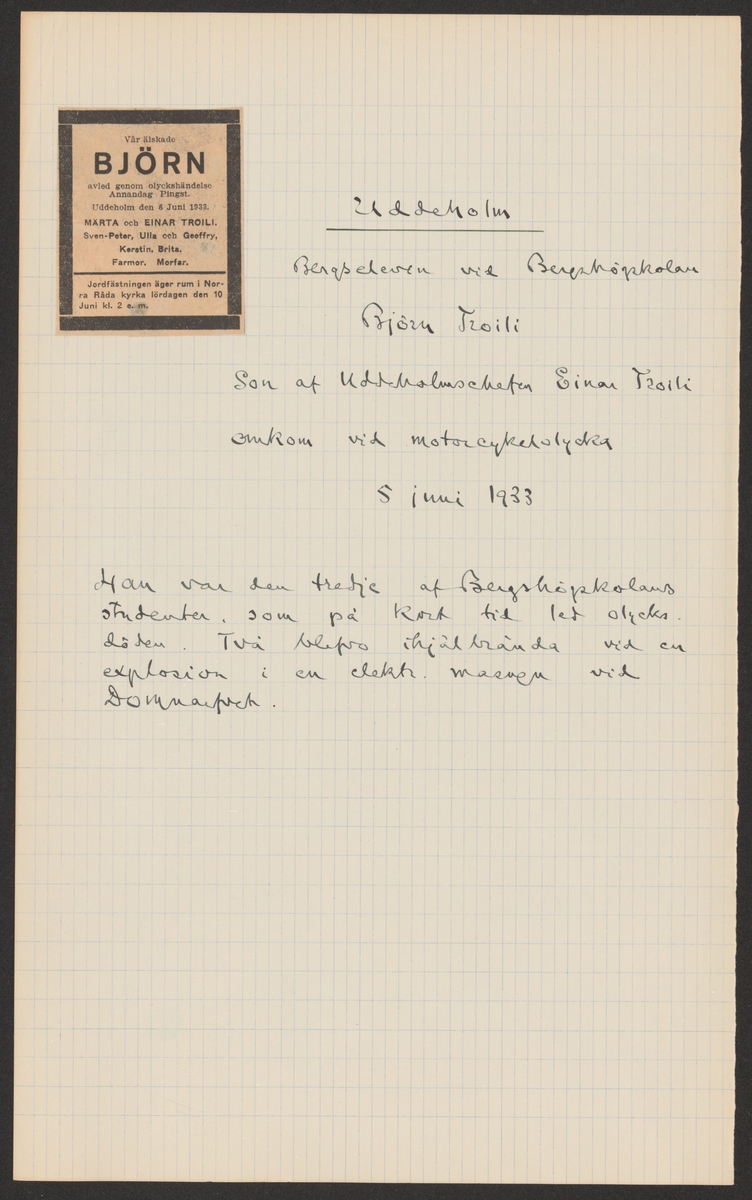 Vår älskade
BJÖRN
avled genom olyckshändelse
Annandag Pingst.
Uddeholm den 6 Juni 1933.
MÄRTA och EINAR TROILI.
Sven-Peter, Ulla och Geoffry,
Kerstin. Brita.
Farmor. Morfar.
Jordfästningen äger rum i Nor-
ra Råda kyrka lördagen den 10
Juni kl. 2 e. m.
Uddeholm
Bergseleven vid Bergshögskolan
Björn Troili
Son af Uddeholmschefen Einar Troili
omkom vid motorcykelolycka
5 juni 1933
Han var den tredje af Bergshögskolans
studenter, som på kort tid led olycks-
döden. Två blefvo ihjälbrända vid en
explosion i en elektr. masugn vid
Domnarfvet.